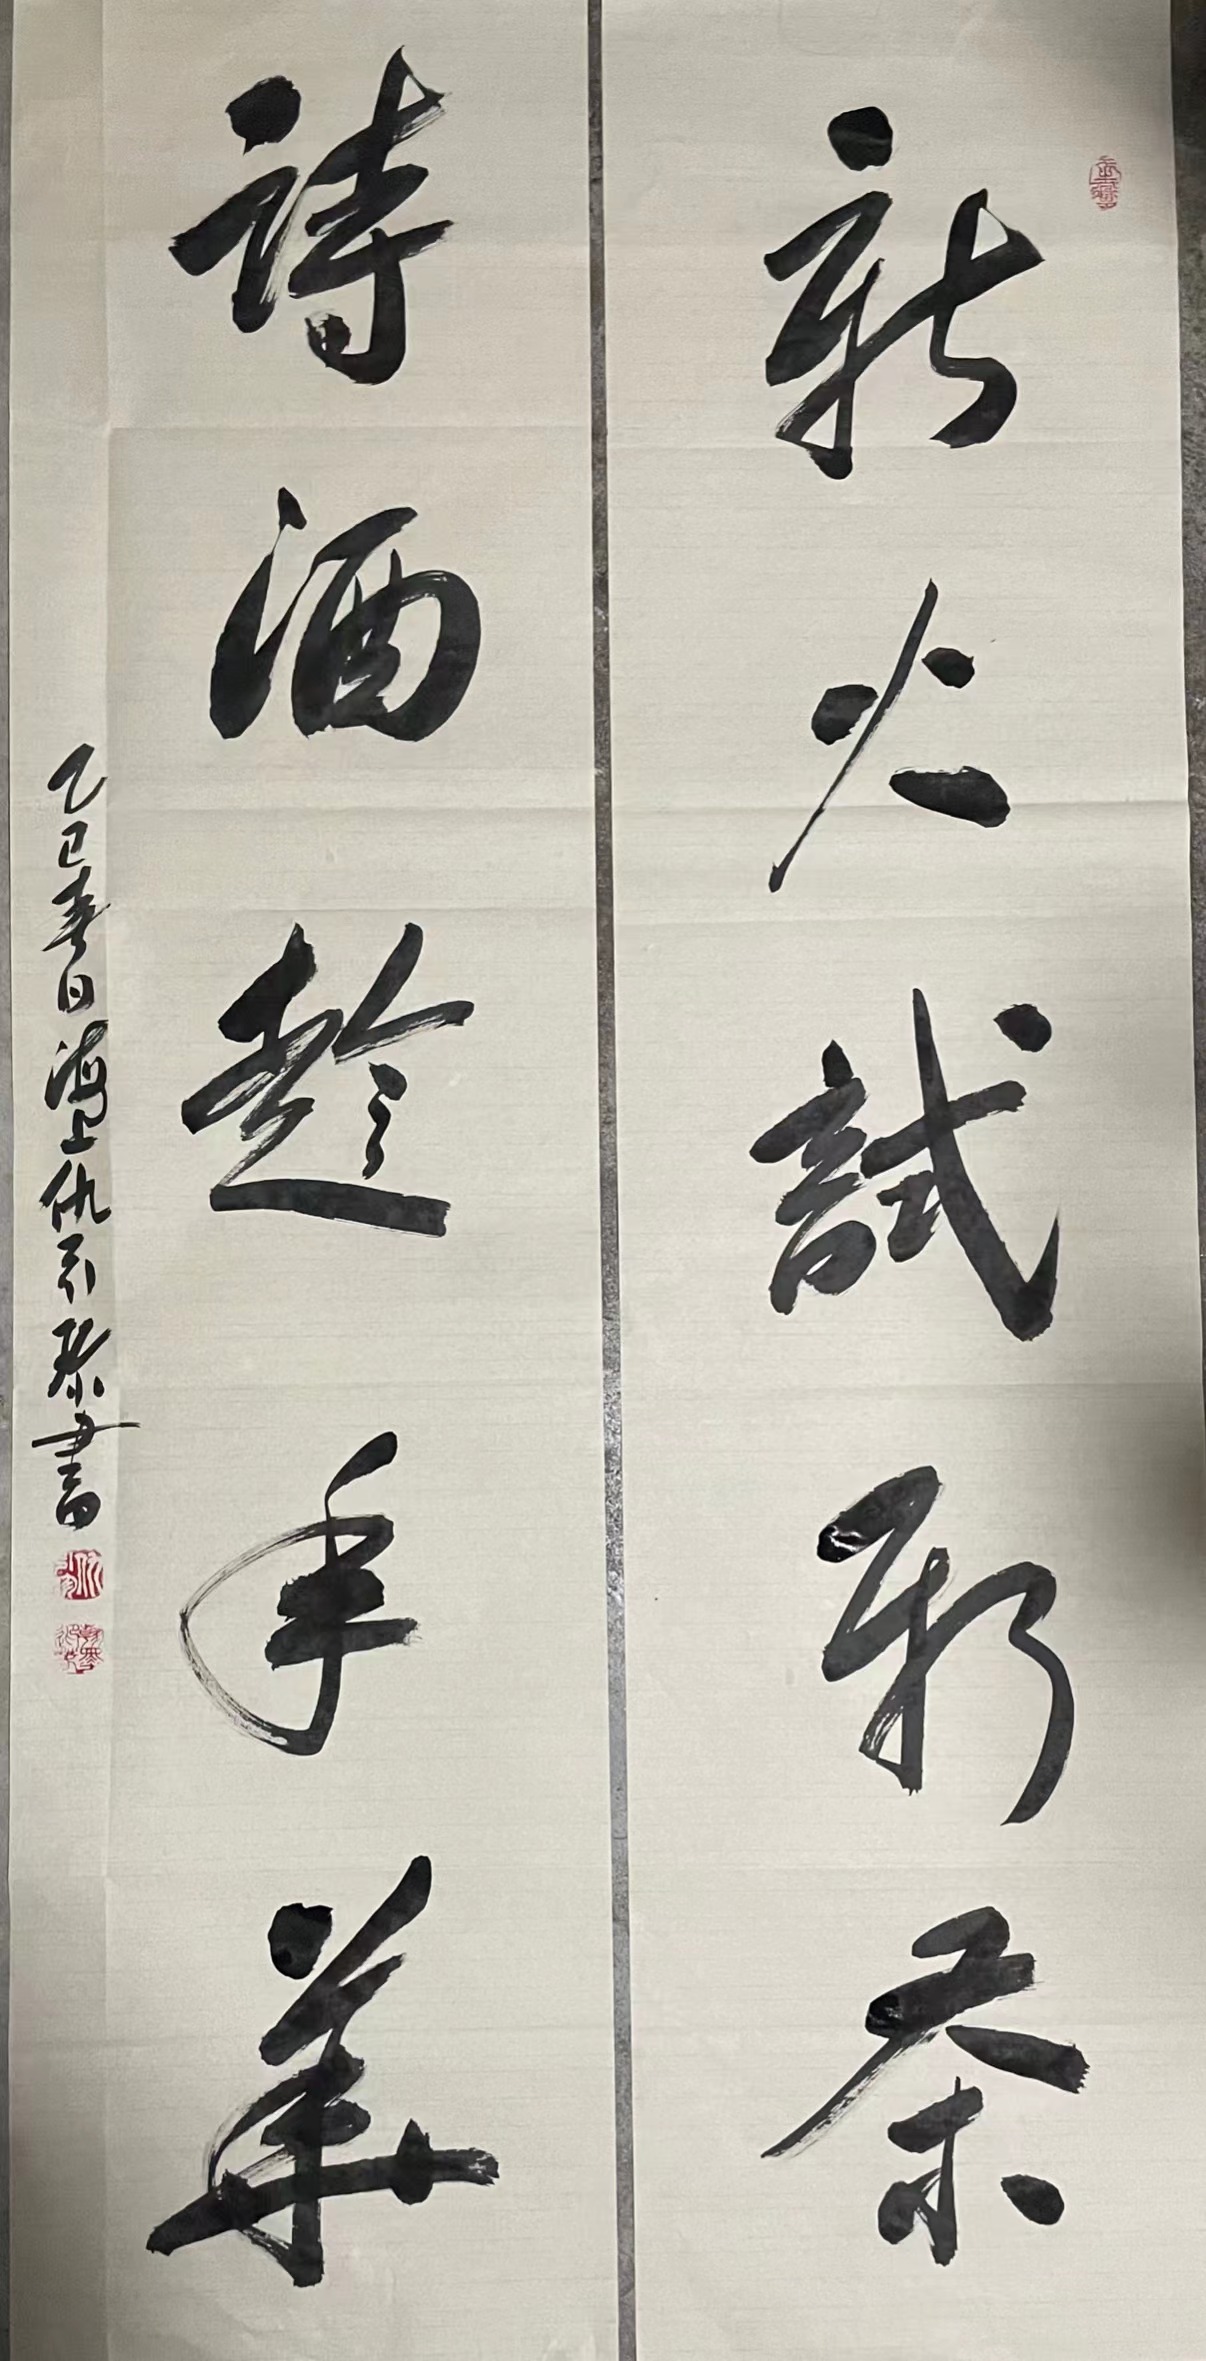 新火試新茶
詩酒趁年華
乙巳春日海上仇
書